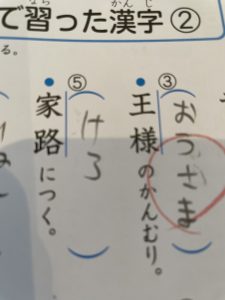 で習った漢字②
なら
かんじ
る。
③
おうさま
王様のかんむり。
⑤
けろ
家路につく。